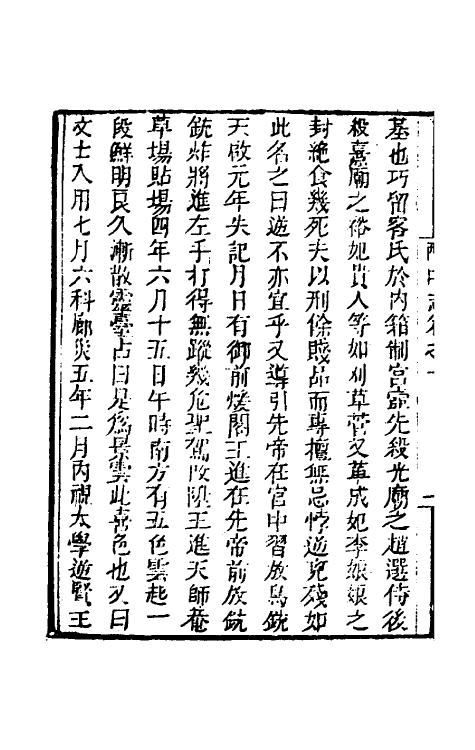 基也巧留客氏於內箝制宮壼先殺光廟之趙選侍後
殺熹廟之裕妃貴人等如刈草菅又革成妃李娘娘之
封絶食幾死夫以刑餘賤品而專擅無忌悖逆兇殘如
此名之曰逆不亦宜乎又導引先帝在宮中習放鳥銃
天啟元年失記月日有御前煖閣王進在先帝前放銃
銃炸將進左手打得無蹤幾危聖駕改陞王進天師菴
草塲貼塲四年六月十五日午時南方有五色雲起一
段鮮明良久漸散靈臺占曰是爲景雲此喜色也又曰
文士入用七月六科廊災五年二月內視太學逆賢王